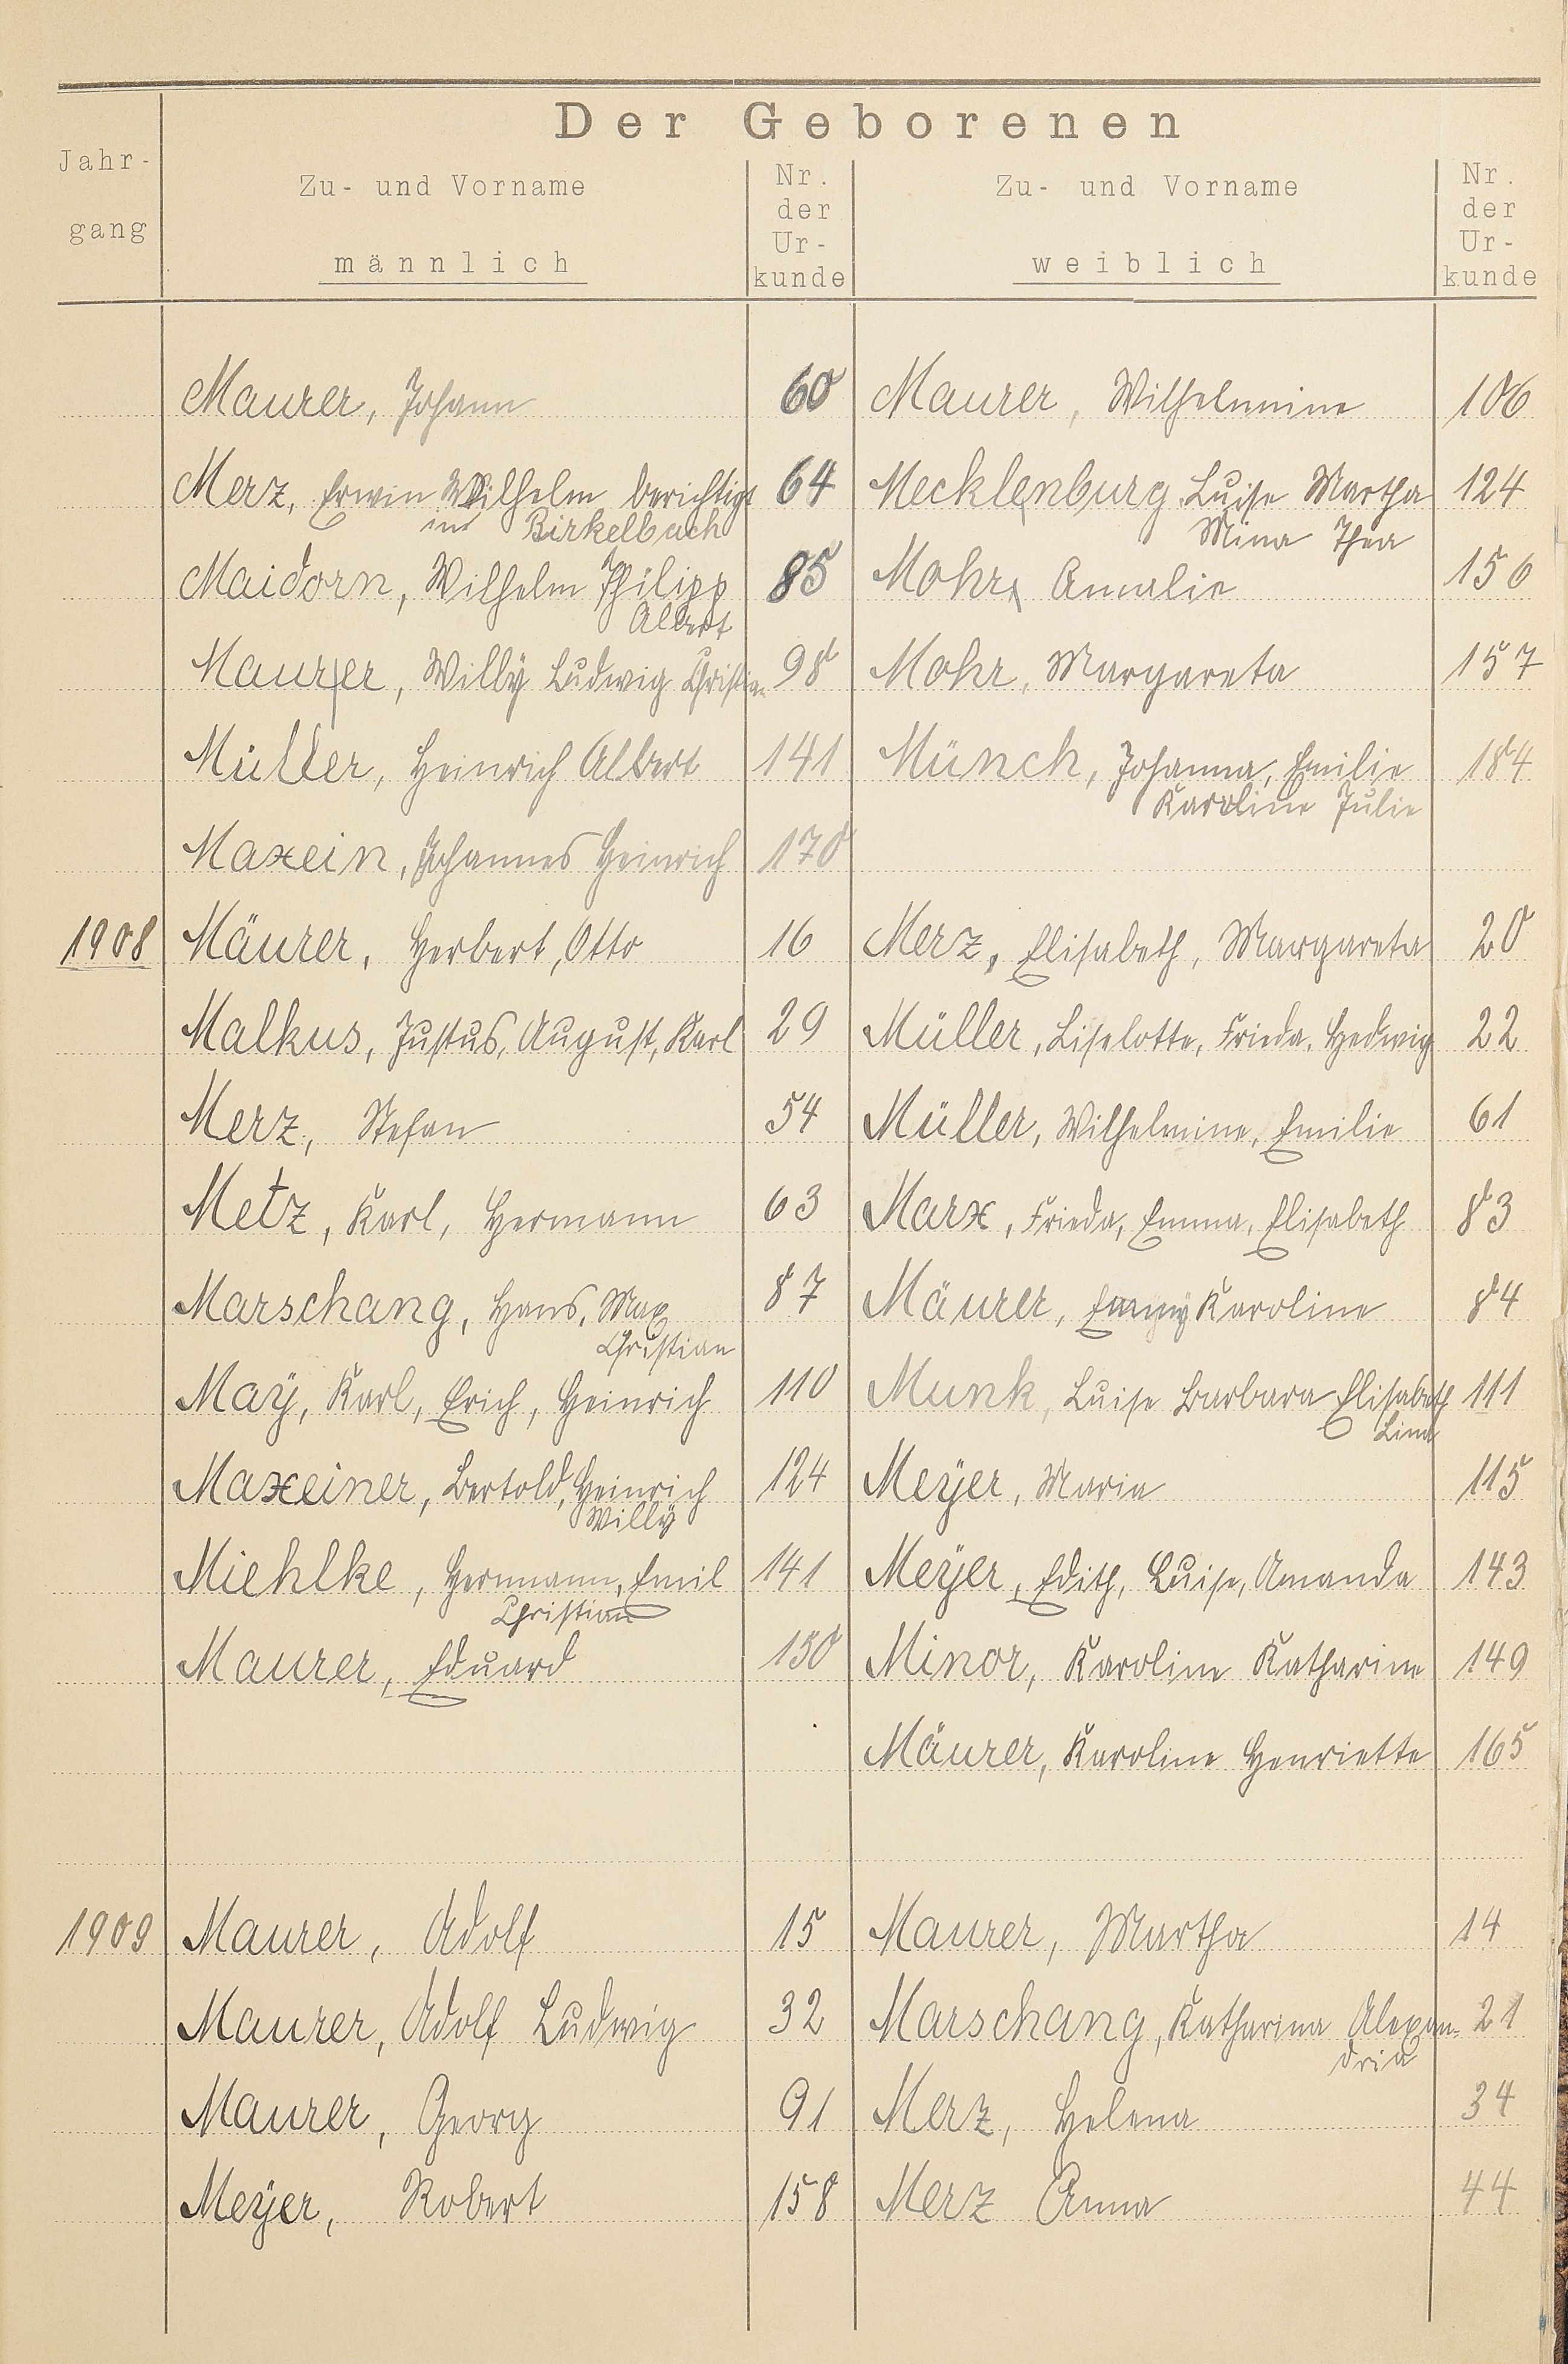 Der Geborenen
Jahr-
gang
Zu- und Vorname
männlich
Nr.
der
Ur-
kunde
Zu- und Vorname
weiblich
Nr.
der
Ur-
kunde
Maurer, Johann 60 Maurer, Wilhelmine 106
Merz, Erwin Wilhelm berichtigt 64 Mecklenburg Luise Martha 124
in Birkelbach Mina Thea
Maidorn, Wilhelm Philipp 85 Mohr, Amalie 156
Albert
Maurer, Willy Ludwig Christian 98 Mohr, Margareta 157
Müller, Heinrich Albert 141 Münch, Johanna, Emilie 184
Karoline Julie
Maxein, Johannes Heinrich 170
1908 Mäurer, Herbert, Otto 16 Merz, Elisabeth, Margareta 20
Malkus, Justus, August, Karl 29 Müller, Liselotte, Frieda, Hedwig 22
Merz, Stefan 54 Müller, Wilhelmine, Emilie 61
Metz, Karl, Hermann 63 Marx, Frieda, Emma, Elisabeth 83
Marschang, Hans, Max 87 Mäurer, Emmy Karoline 84
Christian
May, Karl, Erich, Heinrich 110 Munk, Luise Barbara Elisabeth 111
Lina
Maxeiner, Bertold, Heinrich 124 Meyer, Maria 115
Willy
Miehlke, Hermann, Emil 141 Meyer, Edith, Luise, Amanda 143
Christian
Maurer, Eduard 150 Minor, Karoline Katharine 149
Mäurer, Karoline Henriette 165
1909 Maurer, Adolf 15 Maurer, Martha 14
Maurer, Adolf Ludwig 32 Marschang, Katharina Alexan- 21
dria
Maurer, Georg 91 Merz, Helena 34
Meyer, Robert 158 Merz Anna 44